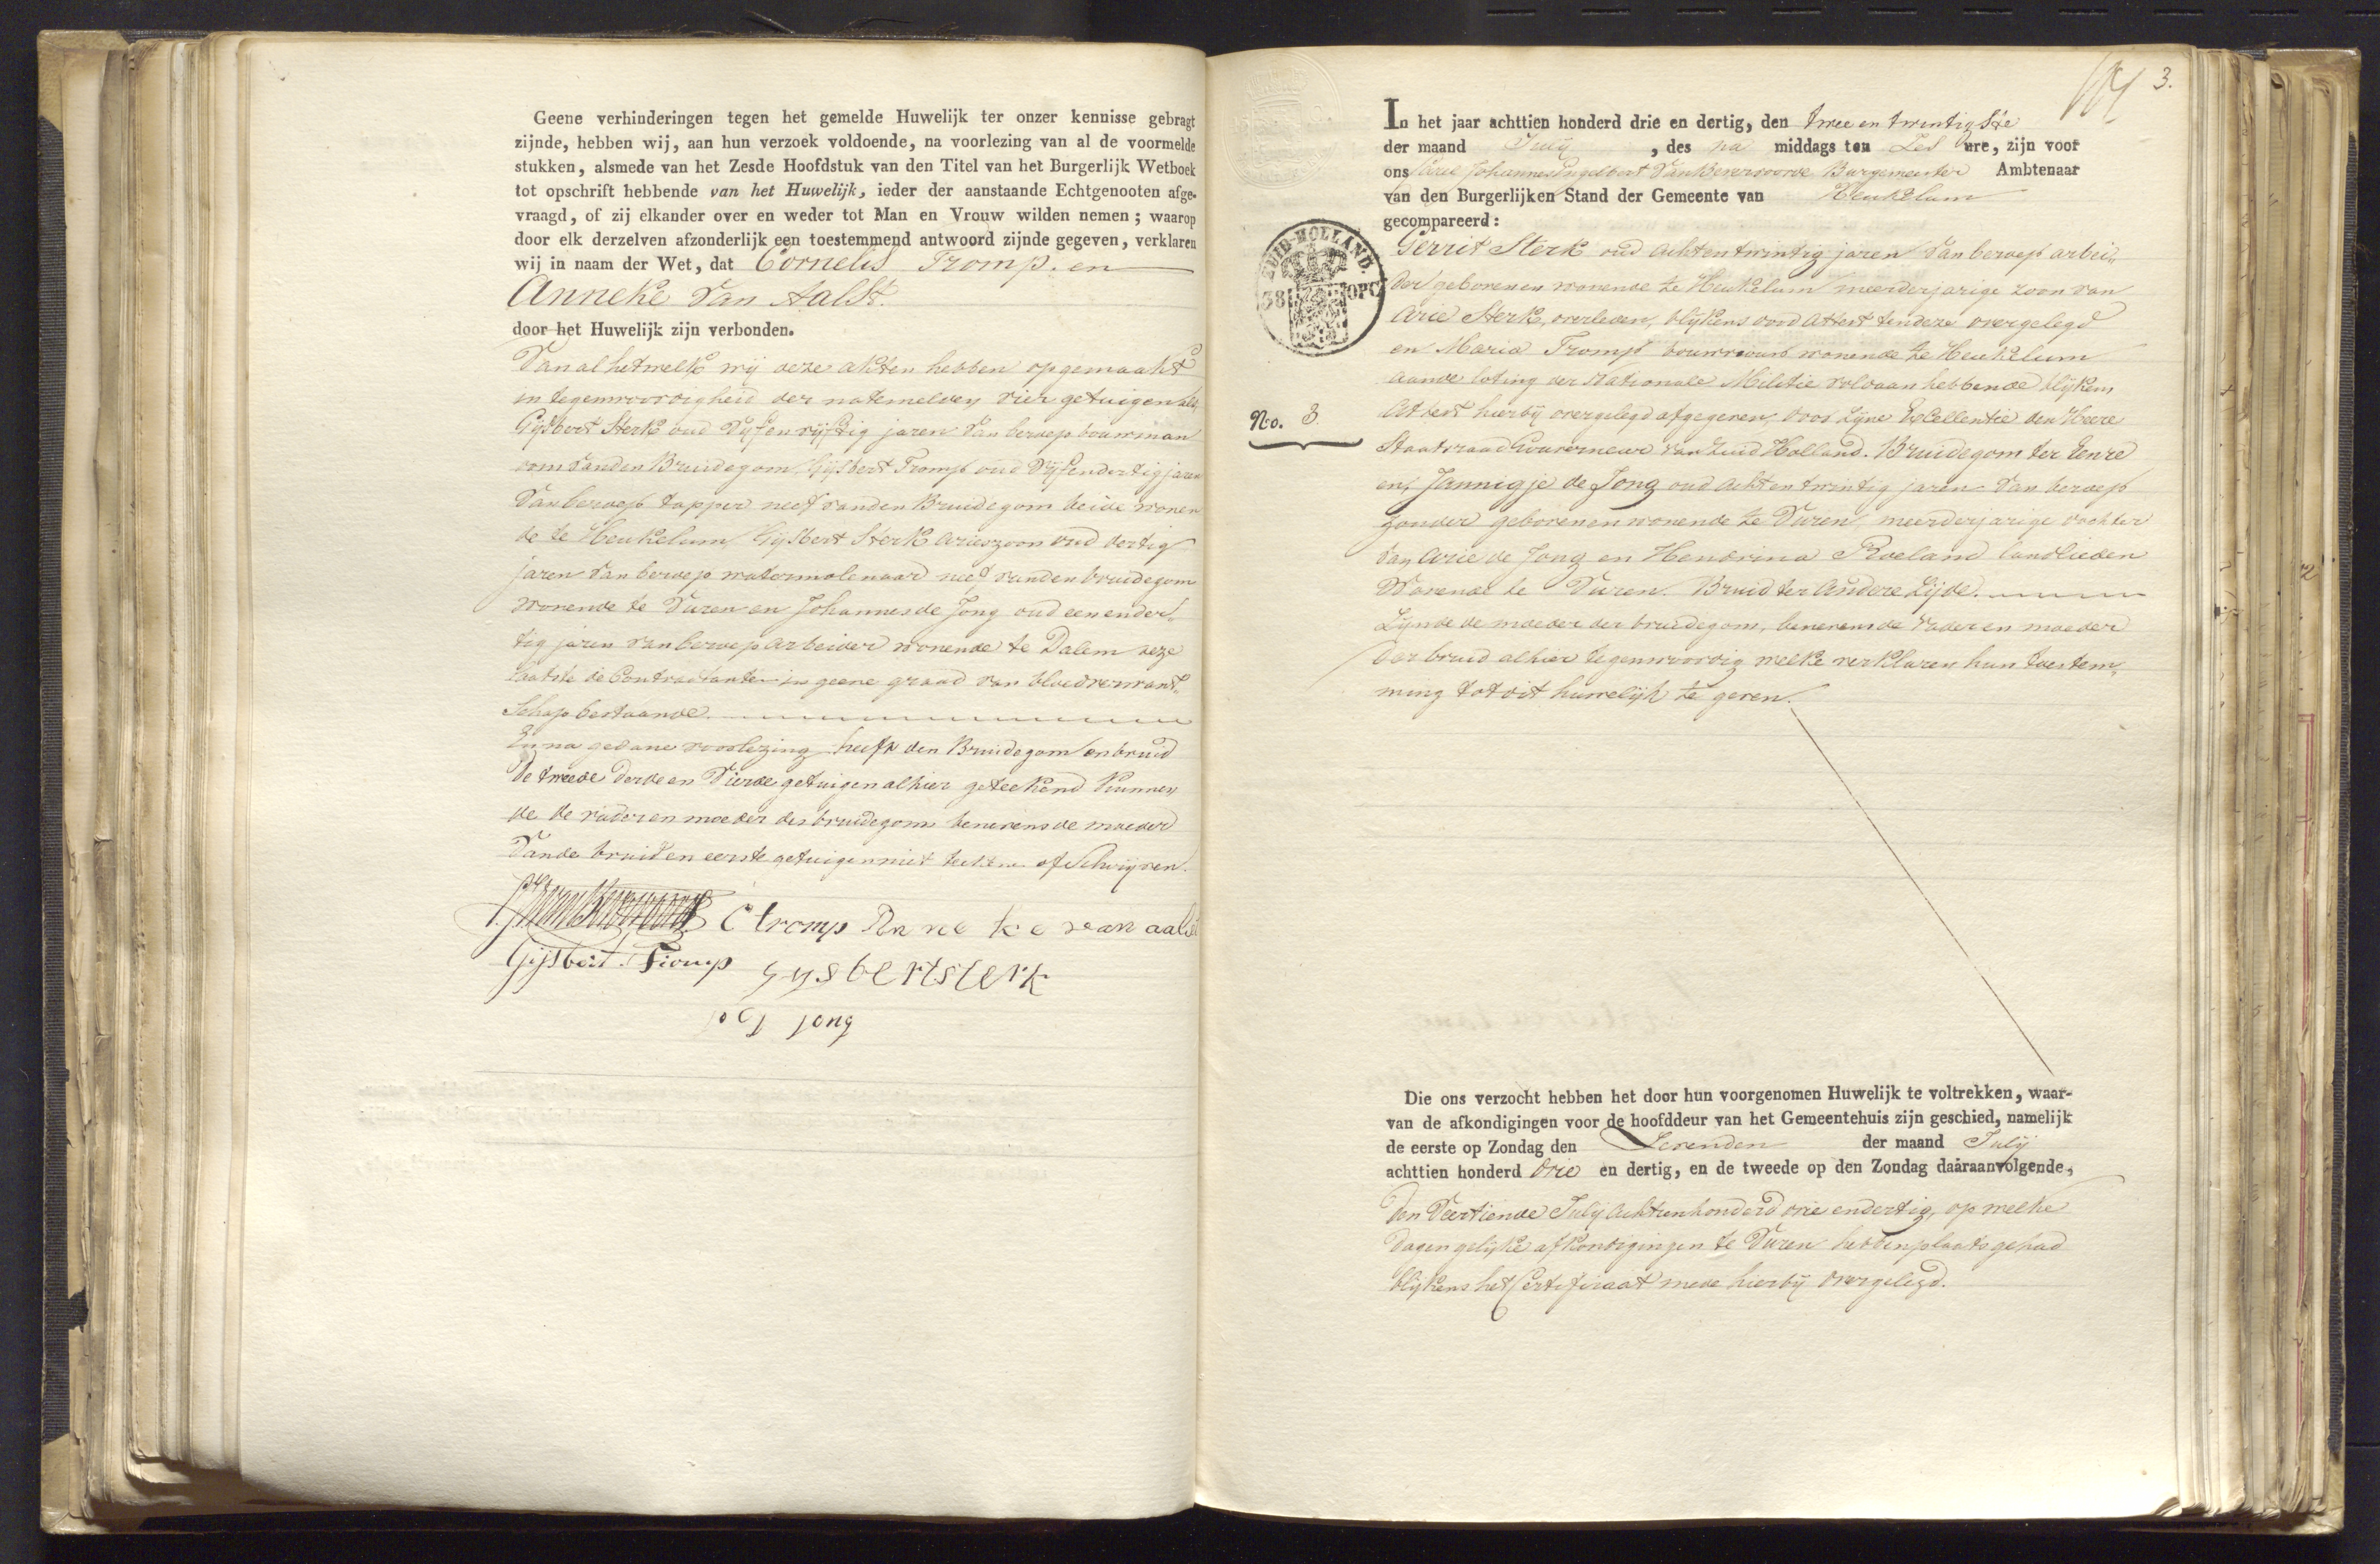 Geene verhinderingen tegen het gemelde Huwelijk ter onzer kennisse gebragt
zijnde, hebben wij, aan hun verzoek voldoende, na voorlezing van al de voormelde
stukken, alsmede van het Zesde Hoofdstuk van den Titel van het Burgerlijk Wetboek
tot opschrift hebbende van het Huwelijk, ieder der aanstaande Echtgenooten afge-
vraagd, of zij elkander over en weder tot Man en Vrouw wilden nemen; waarop
door elk derzelven afzonderlijk een toestemmend antwoord zijnde gegeven, verklaren
wij in naam der Wet, dat Cornelis Tromp. en
Anneke Van Aalst.
door het Huwelijk zijn verbonden.
Van al hetwelk wij deze akten hebben opgemaakt
in tegenwoordigheid der natemelden vier getuigen als,
Gijsbert Sterk oud Vijf en vijftig jaren Van beroep bouwman
oom van den Bruidegom, Gijsbert Tromp oud Vijfendertig jaren
Van beroep tapper neef van den Bruidegom beide wonen
de te Heukelum, Gijsbert Sterk Arieszoon oud dertig
jaren Van beroep watermolenaar neef van den bruidegom
Wonende te Vuren en Johannes de Jong oud een ender„
tig jaren van beroep Arbeider wonende te Dalem deze
laatste de Contractanten in geene graad van bloedverwant„
Schap bestaande.
En na gedane voorlezing heeft den Bruidegom en bruid
De tweede derde en Vierde getuigen alhier geteekend kunnen
de de vader en moeder des bruidegoms benevens de moeder
Van de bruid en eerste getuigen niet teeknen of Schrijven.
C tromp Anneke van aalst
Gijsbert Tromp gysbert sterk
Jong
3.
In het jaar achttien honderd drie en dertig, den twee en twintigste
der maand Julij, des na middags ten Zes ure, zijn voor
ons Arie Johannes Engelbert Van Benvoorde Burgemeester Ambtenaar
van den Burgerlijken Stand der Gemeente van Heukelum
gecompareerd:
ZUID-HOLLAND.
38 OPC
Gerrit Sterk oud Achtentwintig jaren Van beroep arbei„
der geboren en wonende te Heukelum meerderjarige zoon van
Arie Sterk, overleden, blijkens dood Attest ten deze overgelegd
en Maria Tromp bouwvrouw wonende te Heukelum
aan de loting der Nationale Militie voldaan hebbende blijkens
No. 3
Attest hierbij overgelegd afgegeven, door Zijne Excellentie den Heere
Staatsraad Gouverneur van Zuid Holland. Bruidegom ter Eenre
en, Jannigje de Jong oud Achtentwintig jaren Van beroep
zonder geboren en wonende te Vuren, meerderjarige dochter
Van Arie de Jong en Hendrina Roeland landlieden
Wonende te Vuren. Bruid ter Andere Zijde.
Zijnde de moeder der bruidegom, benevens de Vader en moeder
Der bruid alhier tegenwoordig welke verklaren hun toestem„
ming tot dit huwelijk te geven.
Die ons verzocht hebben het door hun voorgenomen Huwelijk te voltrekken, waar-
van de afkondigingen voor de hoofddeur van het Gemeentehuis zijn geschied, namelijk
de eerste op Zondag den Zevenden der maand Julij
achttien honderd drie en dertig, en de tweede op den Zondag daaraanvolgende,
Den Veertiende Julij Achttienhonderd drie endertig, op welke
Dagen gelijke afkondigingen te Vuren hebben plaats gehad
blijkens het Certificaat mede hierbij Overgelegd.